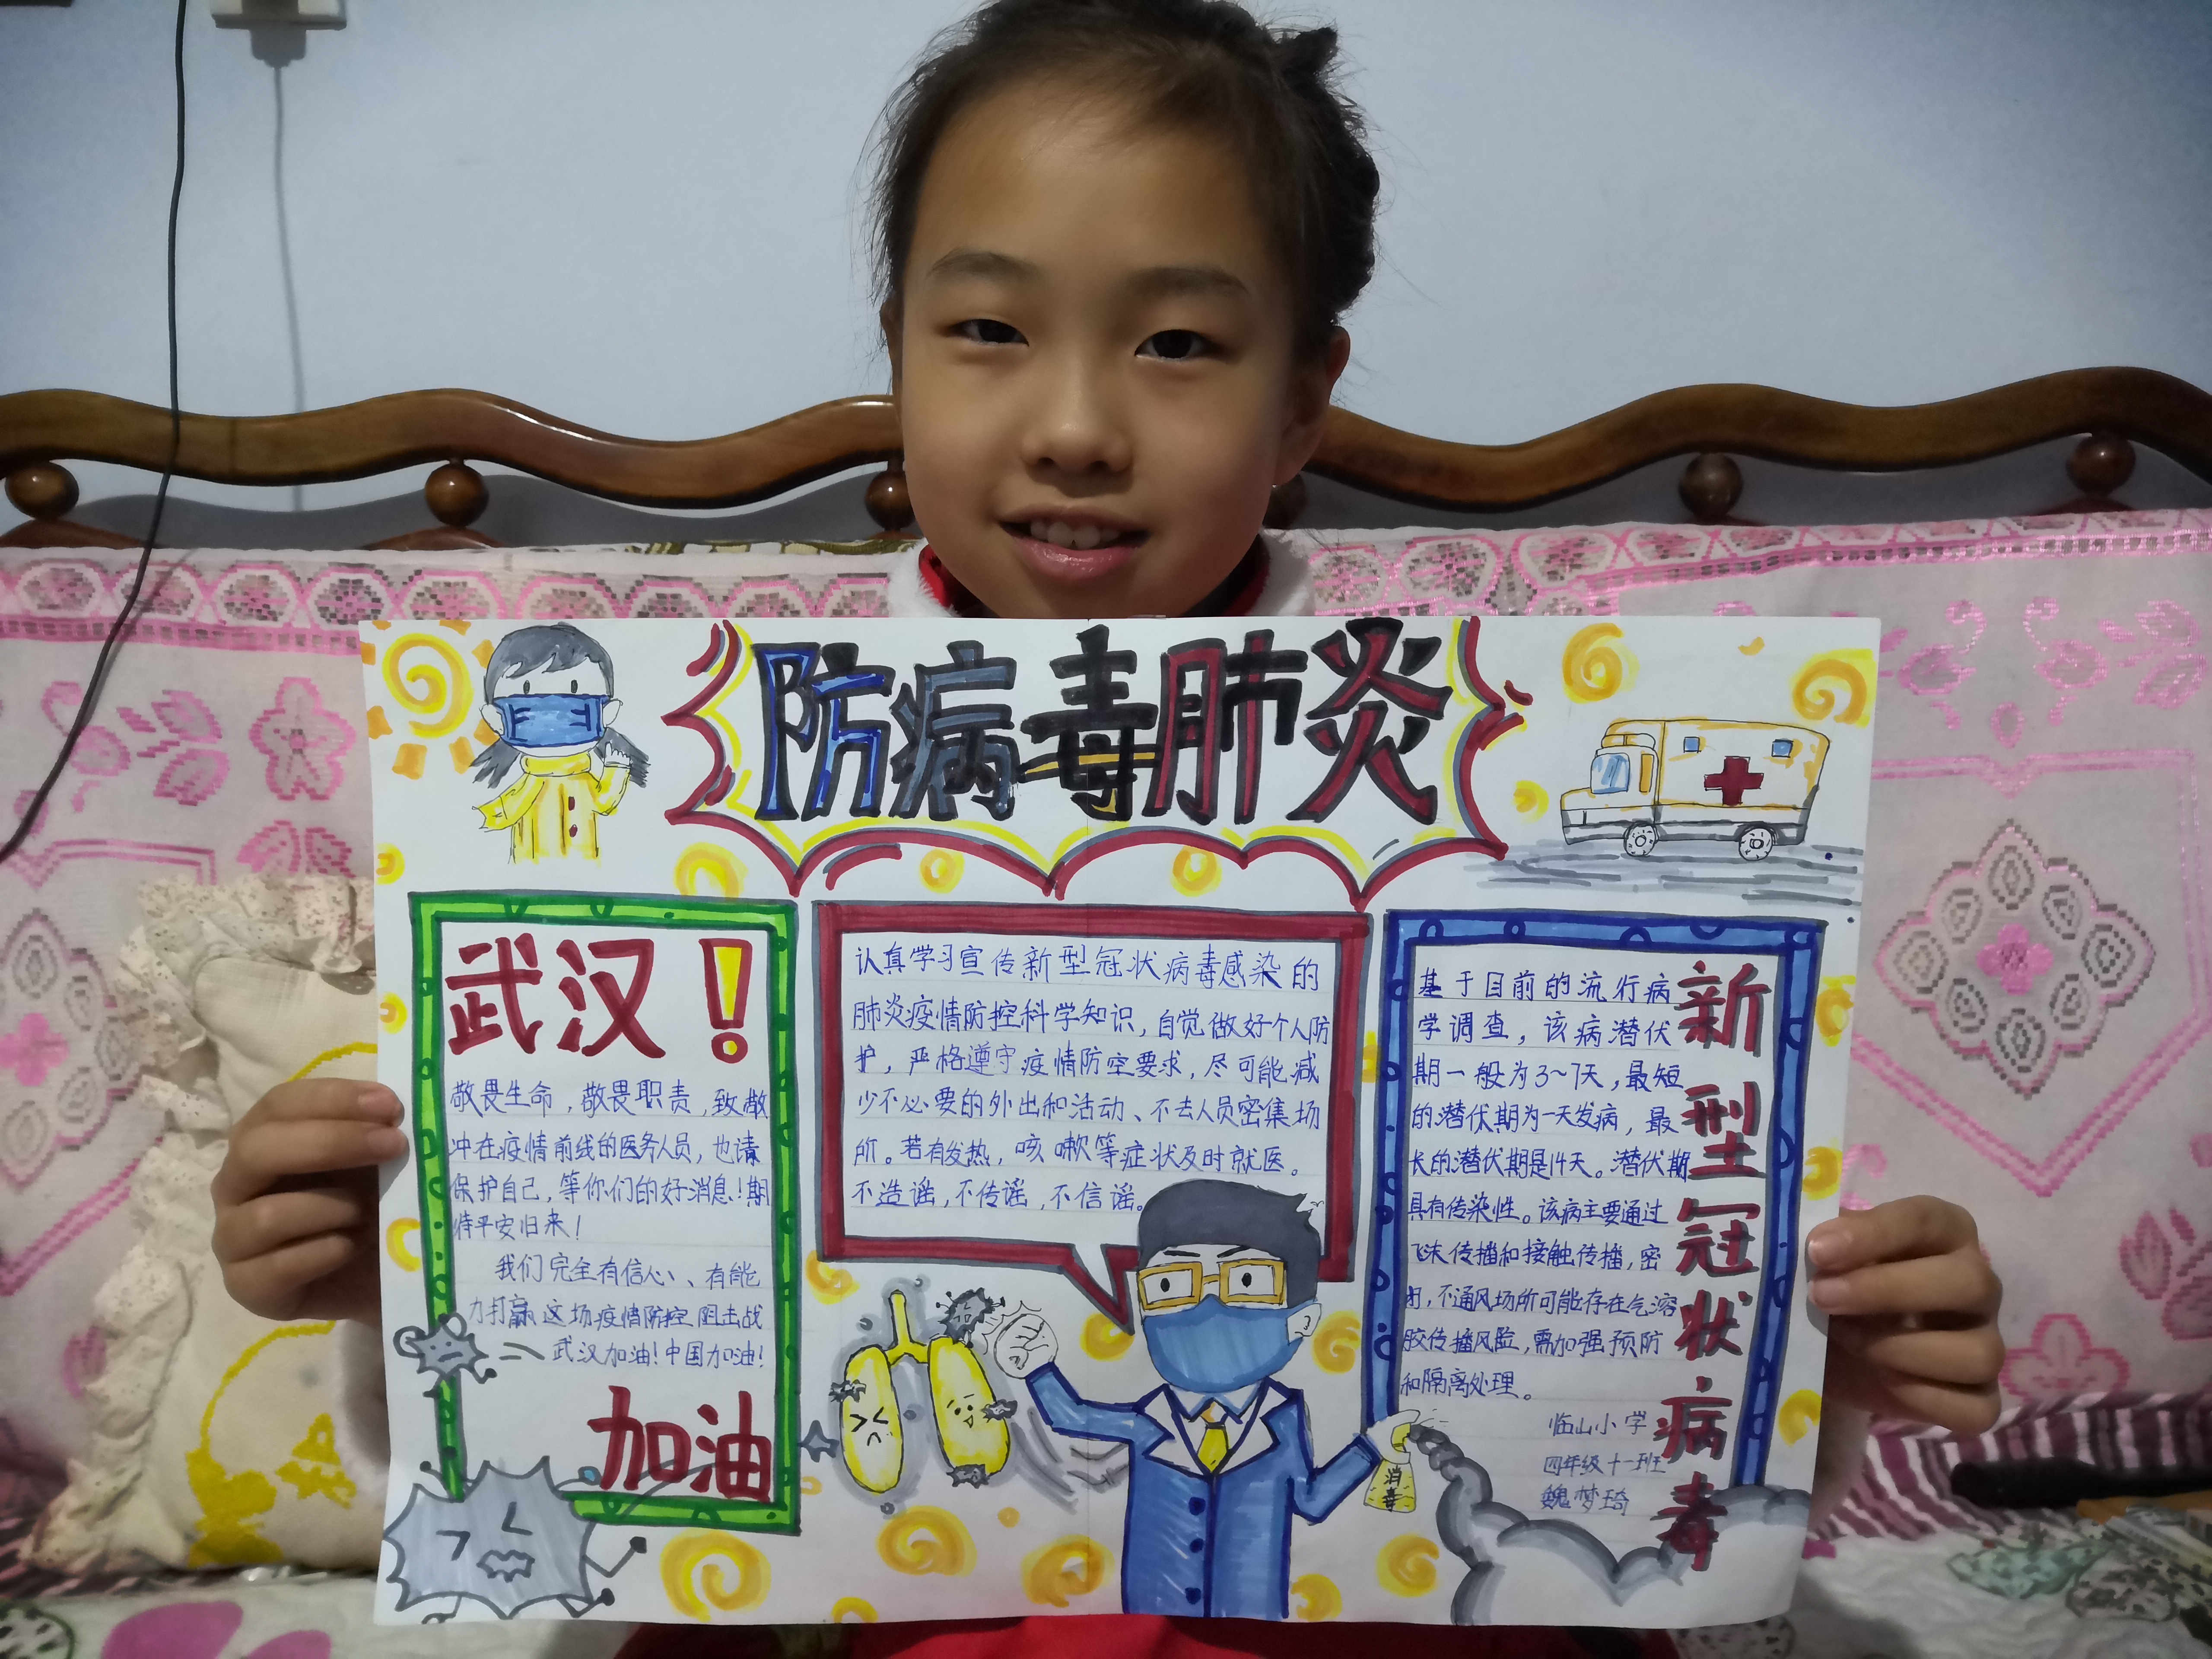 防病毒肺炎
武汉！
敬畏生命，敬畏职责，致敬
冲在疫情前线的医务人员，也请
保护自己，等你们的好消息！期
待平安归来！
我们完全有信心、有能
力打赢这场疫情防控阻击战
武汉加油！中国加油！
加油
认真学习宣传新型冠状病毒感染的
肺炎疫情防控科学知识，自觉做好个人防
护，严格遵守疫情防空要求，尽可能减
少不必要的外出和活动、不去人员密集场
所。若有发热，咳嗽等症状及时就医。
不造谣，不传谣，不信谣。
消毒
新型冠状病毒
基于目前的流行病
学调查，该病潜伏
期一般为3~7天，最短
的潜伏期为一天发病，最
长的潜伏期是14天。潜伏期
具有传染性。该病主要通过
飞沫传播和接触传播，密
闭，不通风场所可能存在气溶
胶传播风险，需加强预防
和隔离处理。
临山小学
四年级十一班
魏梦琦